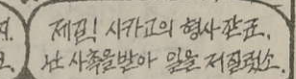 제길! 시카고의 형사란표.
난 사촉을받아 일을 저질렀소.